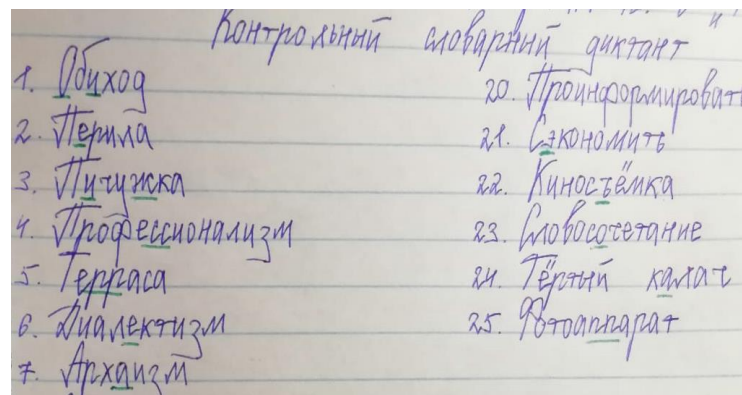 Контрольный словарный диктант
1. Обиход
2. Перила
3. Пичужка
4. Профессионализм
5. Терраса
6. Диалектизм
7. Архаизм
20. Проинформироват
21. Сэкономить
22. Киносъёмка
23. Словосочетание
24. Тёртый калач
25. Фотоаппарат